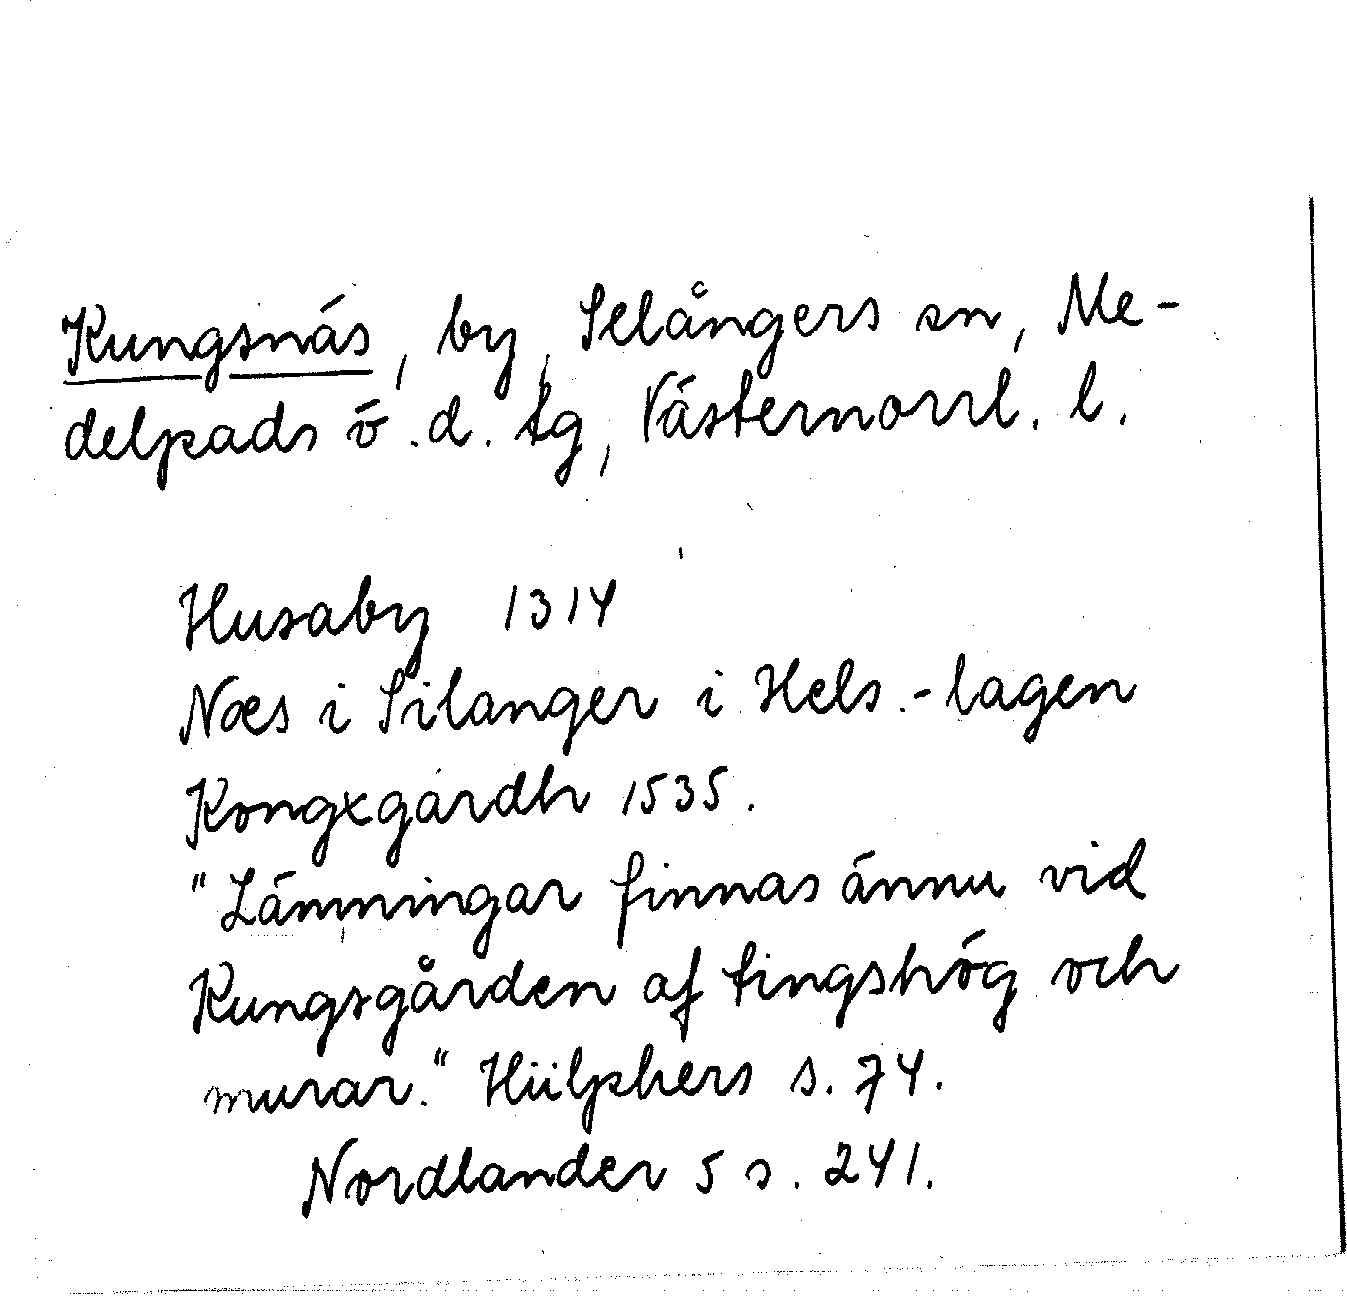 Kungsnäs, by, Selångers sn, Me-
delpads ö.d. tg, Västernorrl. l.
Husaby 1314
Næs i Silanger i Hels.-lagen
Kongxgardh 1535.
"Lämningar finnas ännu vid
Kungsgården af tingshög och
murar." Hülphers s. 74.
Nordlander 5 s. 241.